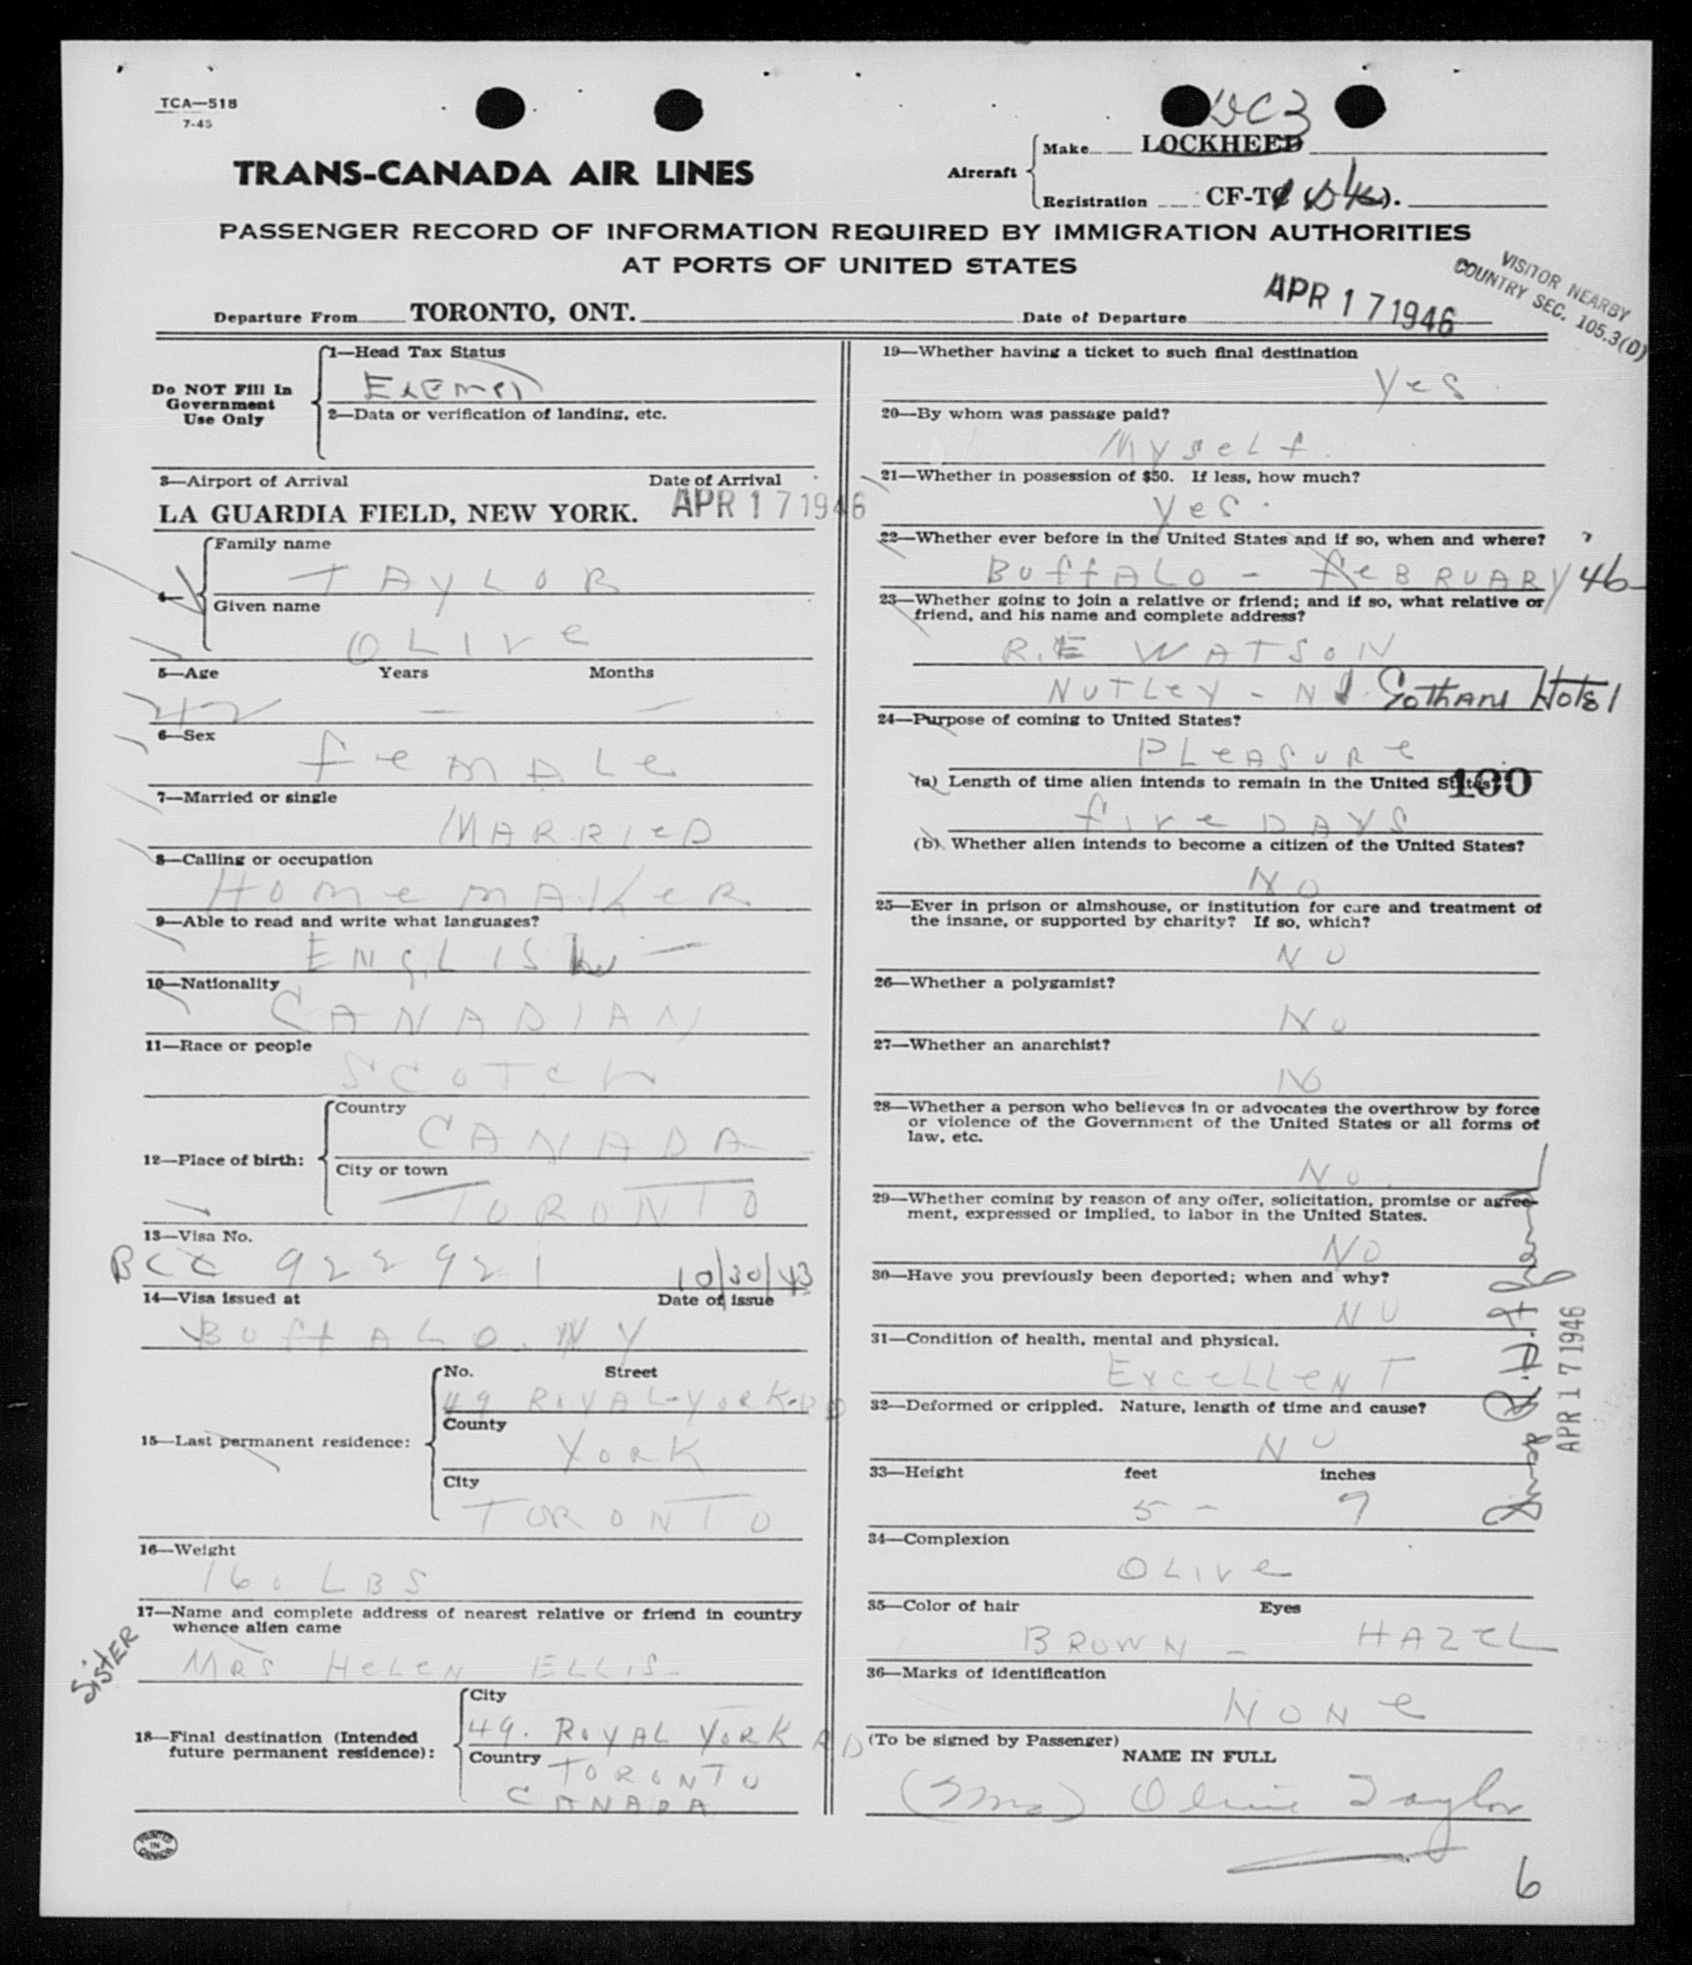 TCA—518
7-45
TRANS-CANADA AIR LINES
DC3
Aircraft
Make LOCKHEED
Registration CF-TC
PASSENGER RECORD OF INFORMATION REQUIRED BY IMMIGRATION AUTHORITIES
AT PORTS OF UNITED STATES
VISITOR NEARBY
COUNTRY SEC. 105.3(D)
Departure From TORONTO, ONT. Date of Departure APR 17 1946
Do NOT Fill In
Government
Use Only
1—Head Tax Status
Exempt
2—Data or verification of landing, etc.
3—Airport of Arrival Date of Arrival
LA GUARDIA FIELD, NEW YORK. APR 17 1946
4—
Family name
TAYLOR
Given name
OLIVe
5—Age Years Months
42 — —
6—Sex
FeMALe
7—Married or single
MARRIeD
8—Calling or occupation
HOMeMAKeR
9—Able to read and write what languages?
ENGLISh —
10—Nationality
CANADIAN
11—Race or people
SCOTCH
12—Place of birth:
Country
CANADA
City or town
TORONTO
13—Visa No.
BCC 922921 10/30/43
14—Visa issued at Date of issue
BUFFALO. NY
15—Last permanent residence:
No. Street
49 ROYAL-YORK-RD
County
YORK
City
TORONTO
16—Weight
160 LBS
17—Name and complete address of nearest relative or friend in country
whence alien came
SISTER
MRS HeLeN ELLIS-
18—Final destination (Intended
future permanent residence):
City
49. ROYAL YORK RD
Country
TORONTO
CANADA
PRINTED
IN
CANADA
19—Whether having a ticket to such final destination
Yes
20—By whom was passage paid?
MYSeLf.
21—Whether in possession of $50. If less, how much?
Yes.
22—Whether ever before in the United States and if so, when and where?
BUffALO - FeBRUARY 46
23—Whether going to join a relative or friend; and if so, what relative or
friend, and his name and complete address?
R.E WATSON
NUTLeY - NJ. GOTHAM HOTEl
24—Purpose of coming to United States?
PLeASURe
(a) Length of time alien intends to remain in the United States?
100
fIVe DAYS
(b) Whether alien intends to become a citizen of the United States?
NO
25—Ever in prison or almshouse, or institution for care and treatment of
the insane, or supported by charity? If so, which?
NO
26—Whether a polygamist?
NO
27—Whether an anarchist?
NO
28—Whether a person who believes in or advocates the overthrow by force
or violence of the Government of the United States or all forms of
law, etc.
NO.
29—Whether coming by reason of any offer, solicitation, promise or agree-
ment, expressed or implied, to labor in the United States.
NO
30—Have you previously been deported; when and why?
NO
31—Condition of health, mental and physical.
ExceLLeNT
32—Deformed or crippled. Nature, length of time and cause?
NO
33—Height feet inches
5 - 9
34—Complexion
OLIVe
35—Color of hair Eyes
BROWN — HAZEL
36—Marks of identification
NONe
APR 17 1946
(To be signed by Passenger)
NAME IN FULL
(Mrs) Olive Taylor
6